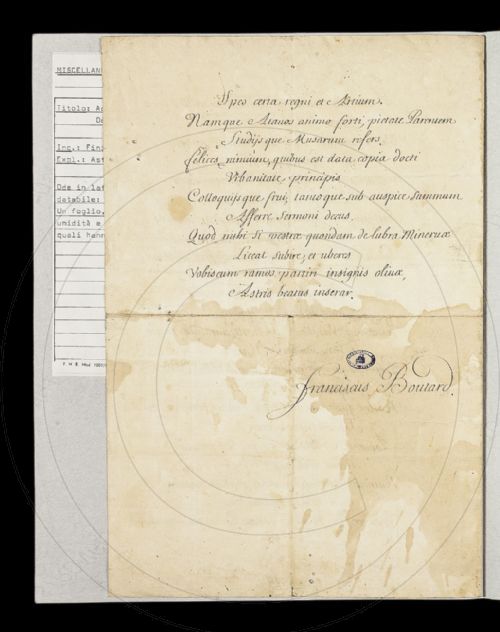 MISCELLAN
Titolo: Ao
Inc.: Fin
Expl.: Ast
Ode in lat
databile:
Un foglio,
umidità e
quali hann
Spes certa regni et Artium.
Namque Atavos animo forti, pietate Parentem
Studijsque Musarum refers.
felices nimium, quibus est data copia docti
Urbanitate principis
Colloquijsque frui, tanto que sub auspice summum
Afferre Sermoni decus.
Quod mihi Si vestræ quondam delubra Minervæ
Liceat subire, et uberes
Vobiscum ramos partiri insignis olivæ,
Astris beatus inserar.
franciscus Boutard.